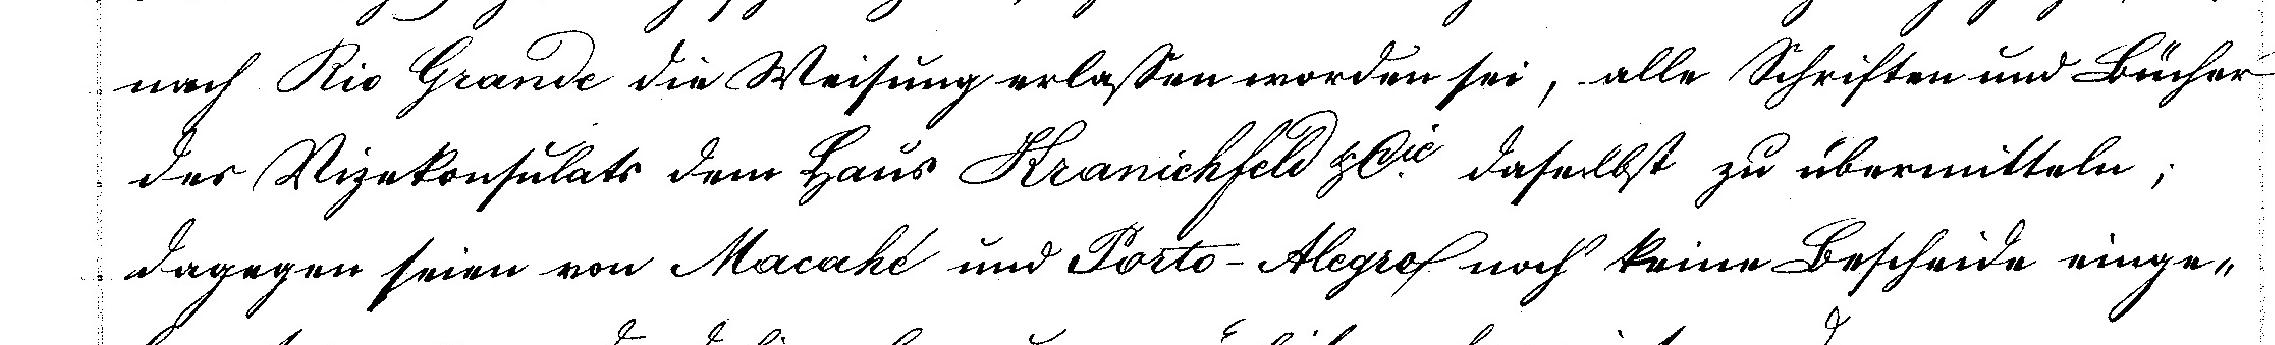 nach Rio Grande die Weisung erlassen worden sei, alle Schriften und Bücher
des Vizekonsulats dem Haus Kranichfeld & Cie. daselbst zu übermitteln;
dagegen seien von Macahé und Porto-Alegre noch keine Bescheide einge„